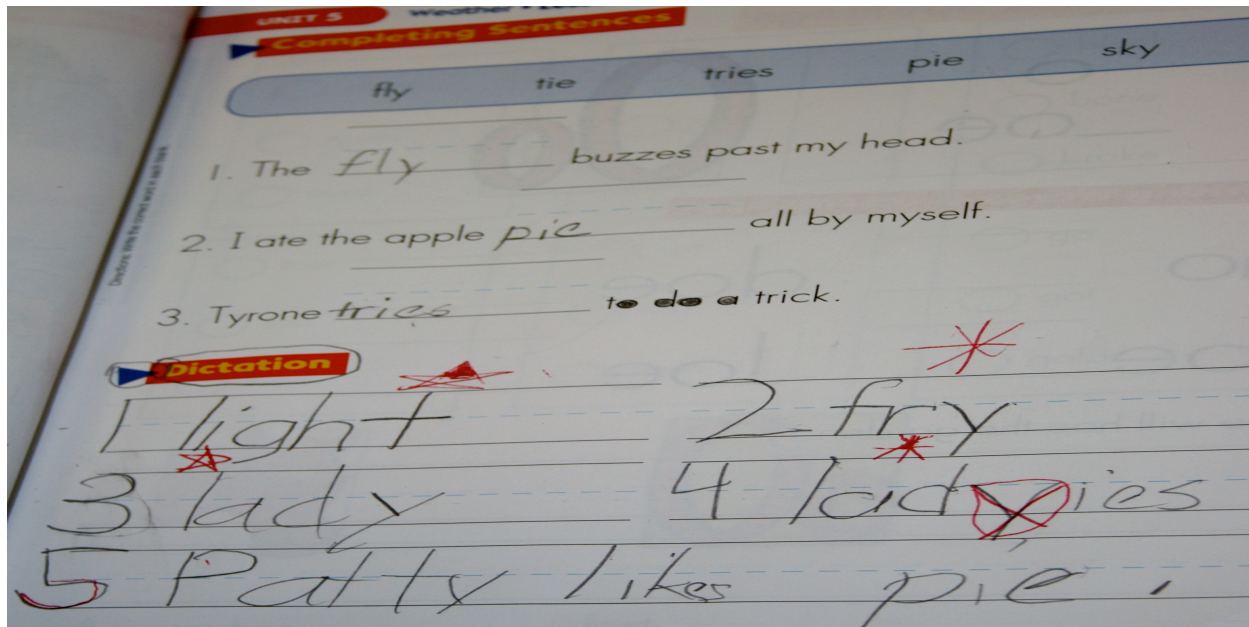 UNIT 5 Weather
Completing Sentences
fly tie tries pie sky
1. The fly buzzes past my head.
2. I ate the apple pie all by myself.
3. Tyrone tries to do a trick.
Dictation
1 light 2 fry
3 lady 4 ladyies
5 Patty likes pie.